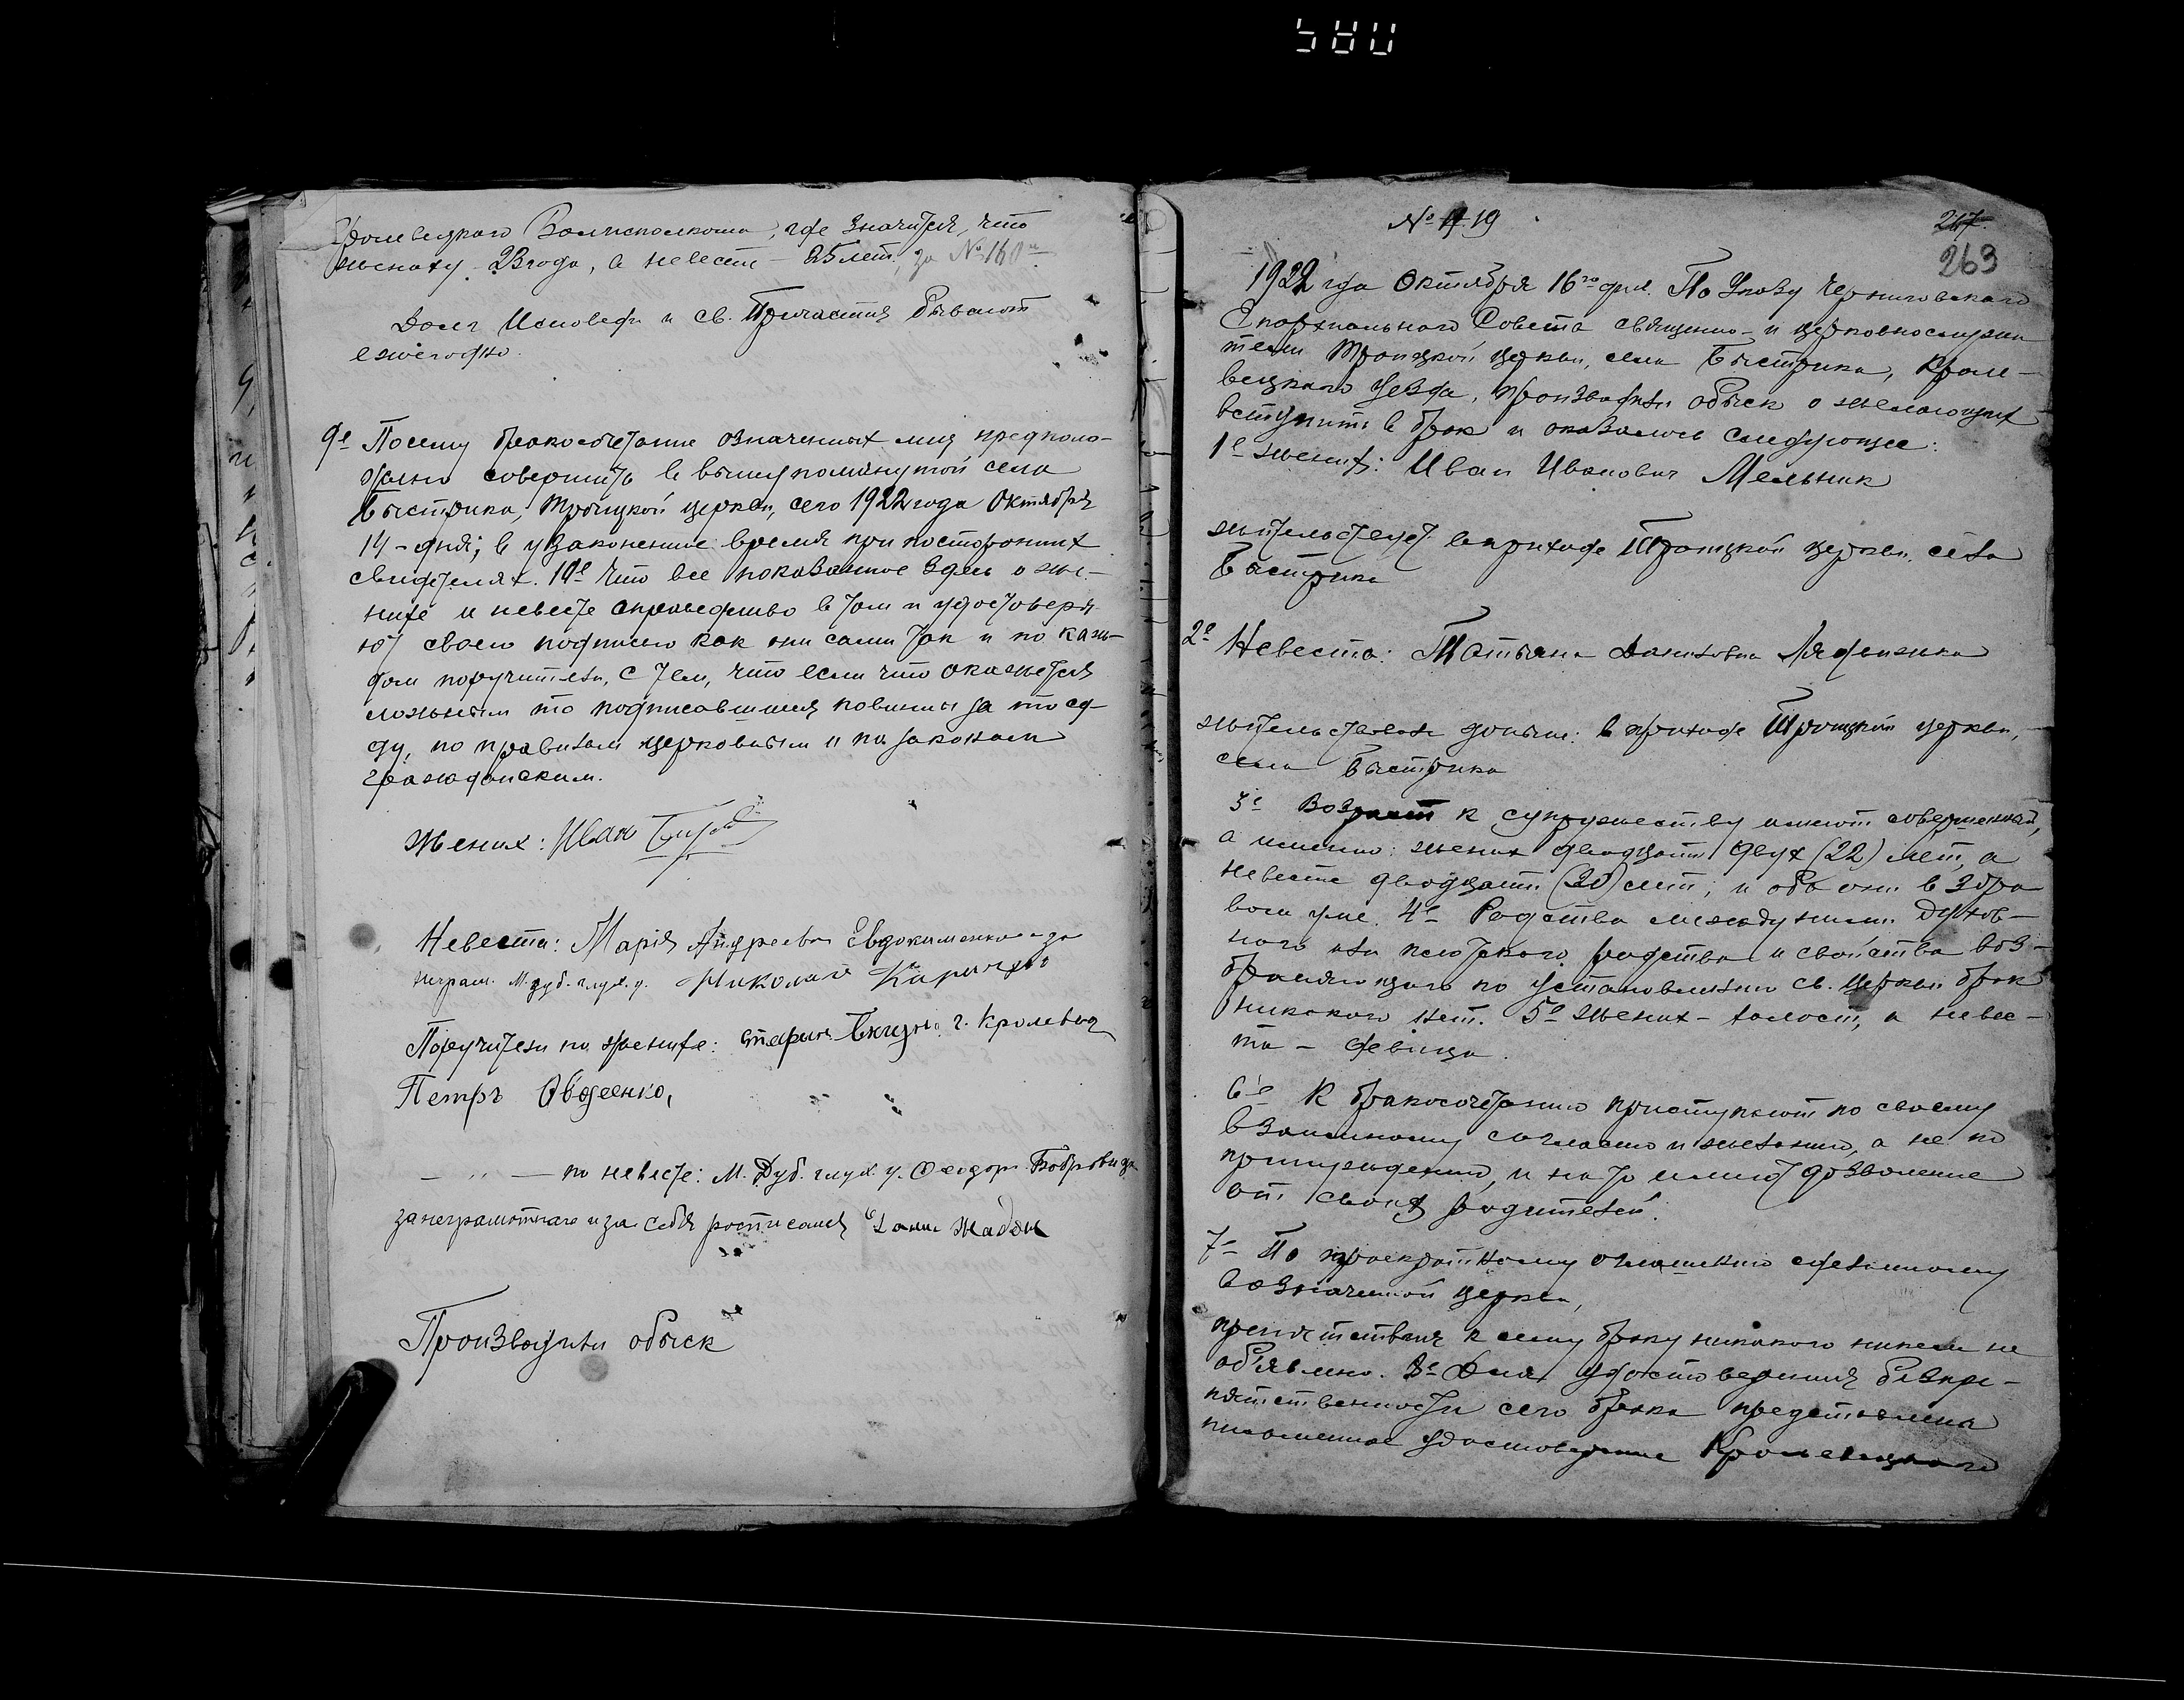 Кролевецкого Волисполкома, где значится, что
жениху 23 года, а невесте – 25 лет, за № 160
Долг Исповеди и св. Причастия бывают
ежегодно.
9е Посему бракосочетание означенных лиц предполо-
жено совершить в вышеупомянутой села
Быстрика, Троицкой церкви, сего 1922 года Октября
14 – дня; в узаконенное время при посторонних
свидетелях. 10е Что все показанное здесь о же-
нихе и невесте справедливо в том и удостоверя-
ют своею подписью как они сами так и по каж-
дом поручители, с тем, что если что окажется
ложным то подписавшиеся повинны за то су-
ду, по правилам церковным и по законам
гражданским.
Жених: Иван
Невеста: Марія Андреевна Евдокименкова за
неграм. М. Дуб. глух. у. Николай
Поручители по женихе: Стефан г. Кролевца
Петръ Овдеенко,
— " — по невесте: М. Дуб. глух. у. Феодор Бобровидза
за неграмотнаго и за себя росписался
Производили обыск
№ 19
267.
263
1922 года Октября 16го дня. По Указу Черниговскаго
Епархиальнаго Совета священно- и церковнослужи
тели Троицкой церкви, села Быстрика, Кроле-
вецкаго уезда, производили обыск о желающих
вступить в брак и оказалось следующее:
1е жених: Иван Иванович Мельник
жительствует в приходе Троицкой церкви, села
Быстрика
2е Невеста: Татьяна Даниловна
жительствовала доныне: в приходе Троицкой церкви,
села Быстрика
3е Возраст к супружеству имеют совершенный,
а именно: жених двадцати двух (22) лет, а
невеста двадцати (20) лет, и оба они в здра
вом уме. 4е Родства между ними духов-
ного или плотского родства и свойства воз-
браняющаго по установлению св. Церкви брак
никакого нет. 5е Жених – холост, а невес-
та – девица.
6е К бракосочетанию приступают по своему
взаимному согласию и желанию, а не по
принуждению, и на то имеют дозволение
от своих родителей.
7е По троекратному оглашению сделанному
в означенной церкви,
препятствия к сему браку никакого никем не
объявлено. 8е Для удостоверения безпре-
пятственности сего брака представлена
письменное удостоверение Кролевецкаго